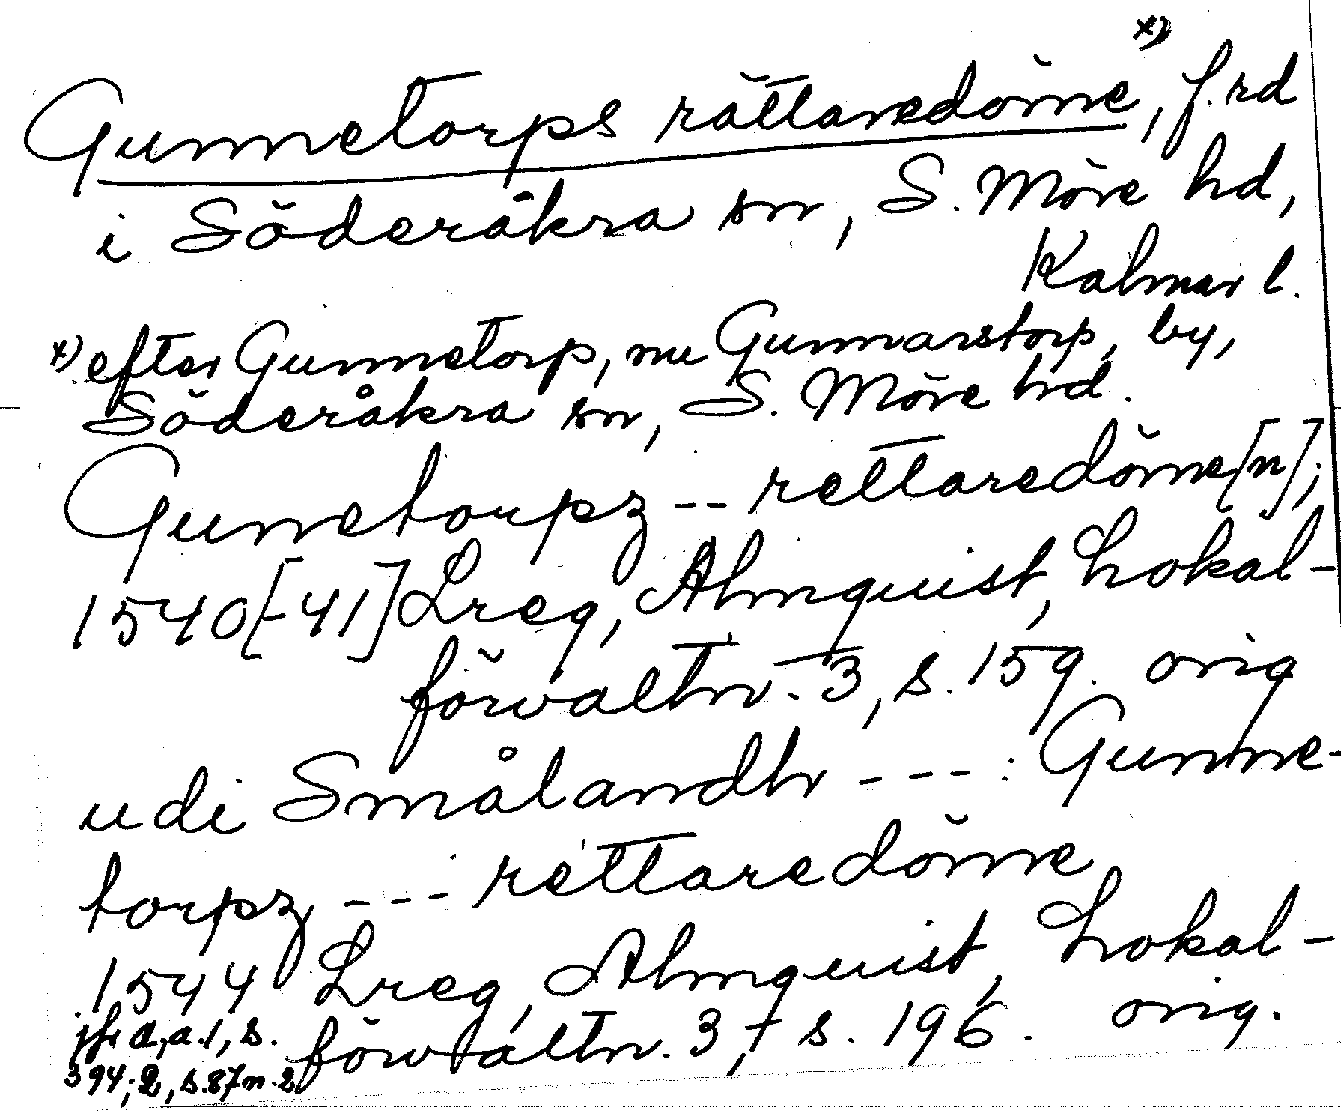 Gunnetorps rättaredöme x), f.rd
i Söderåkra sn, S. Möre hd,
Kalmar l.
x) efter Gunnetorp, nu Gunnarstorp, by,
Söderåkra sn, S. Möre hd.
Gunnetorpz -- rettaredöme[n];
1540[-41] Lreg, Almquist, Lokal-
förvaltn. 3, s. 159. orig
udi Smålandh ---: Gunne-
torpz --- rettaredöme
1544 Lreg, Almquist, Lokal-
förvaltn. 3, s. 196. orig.
jfr a.a. 1, s.
394; 2, s. 87 n. 2